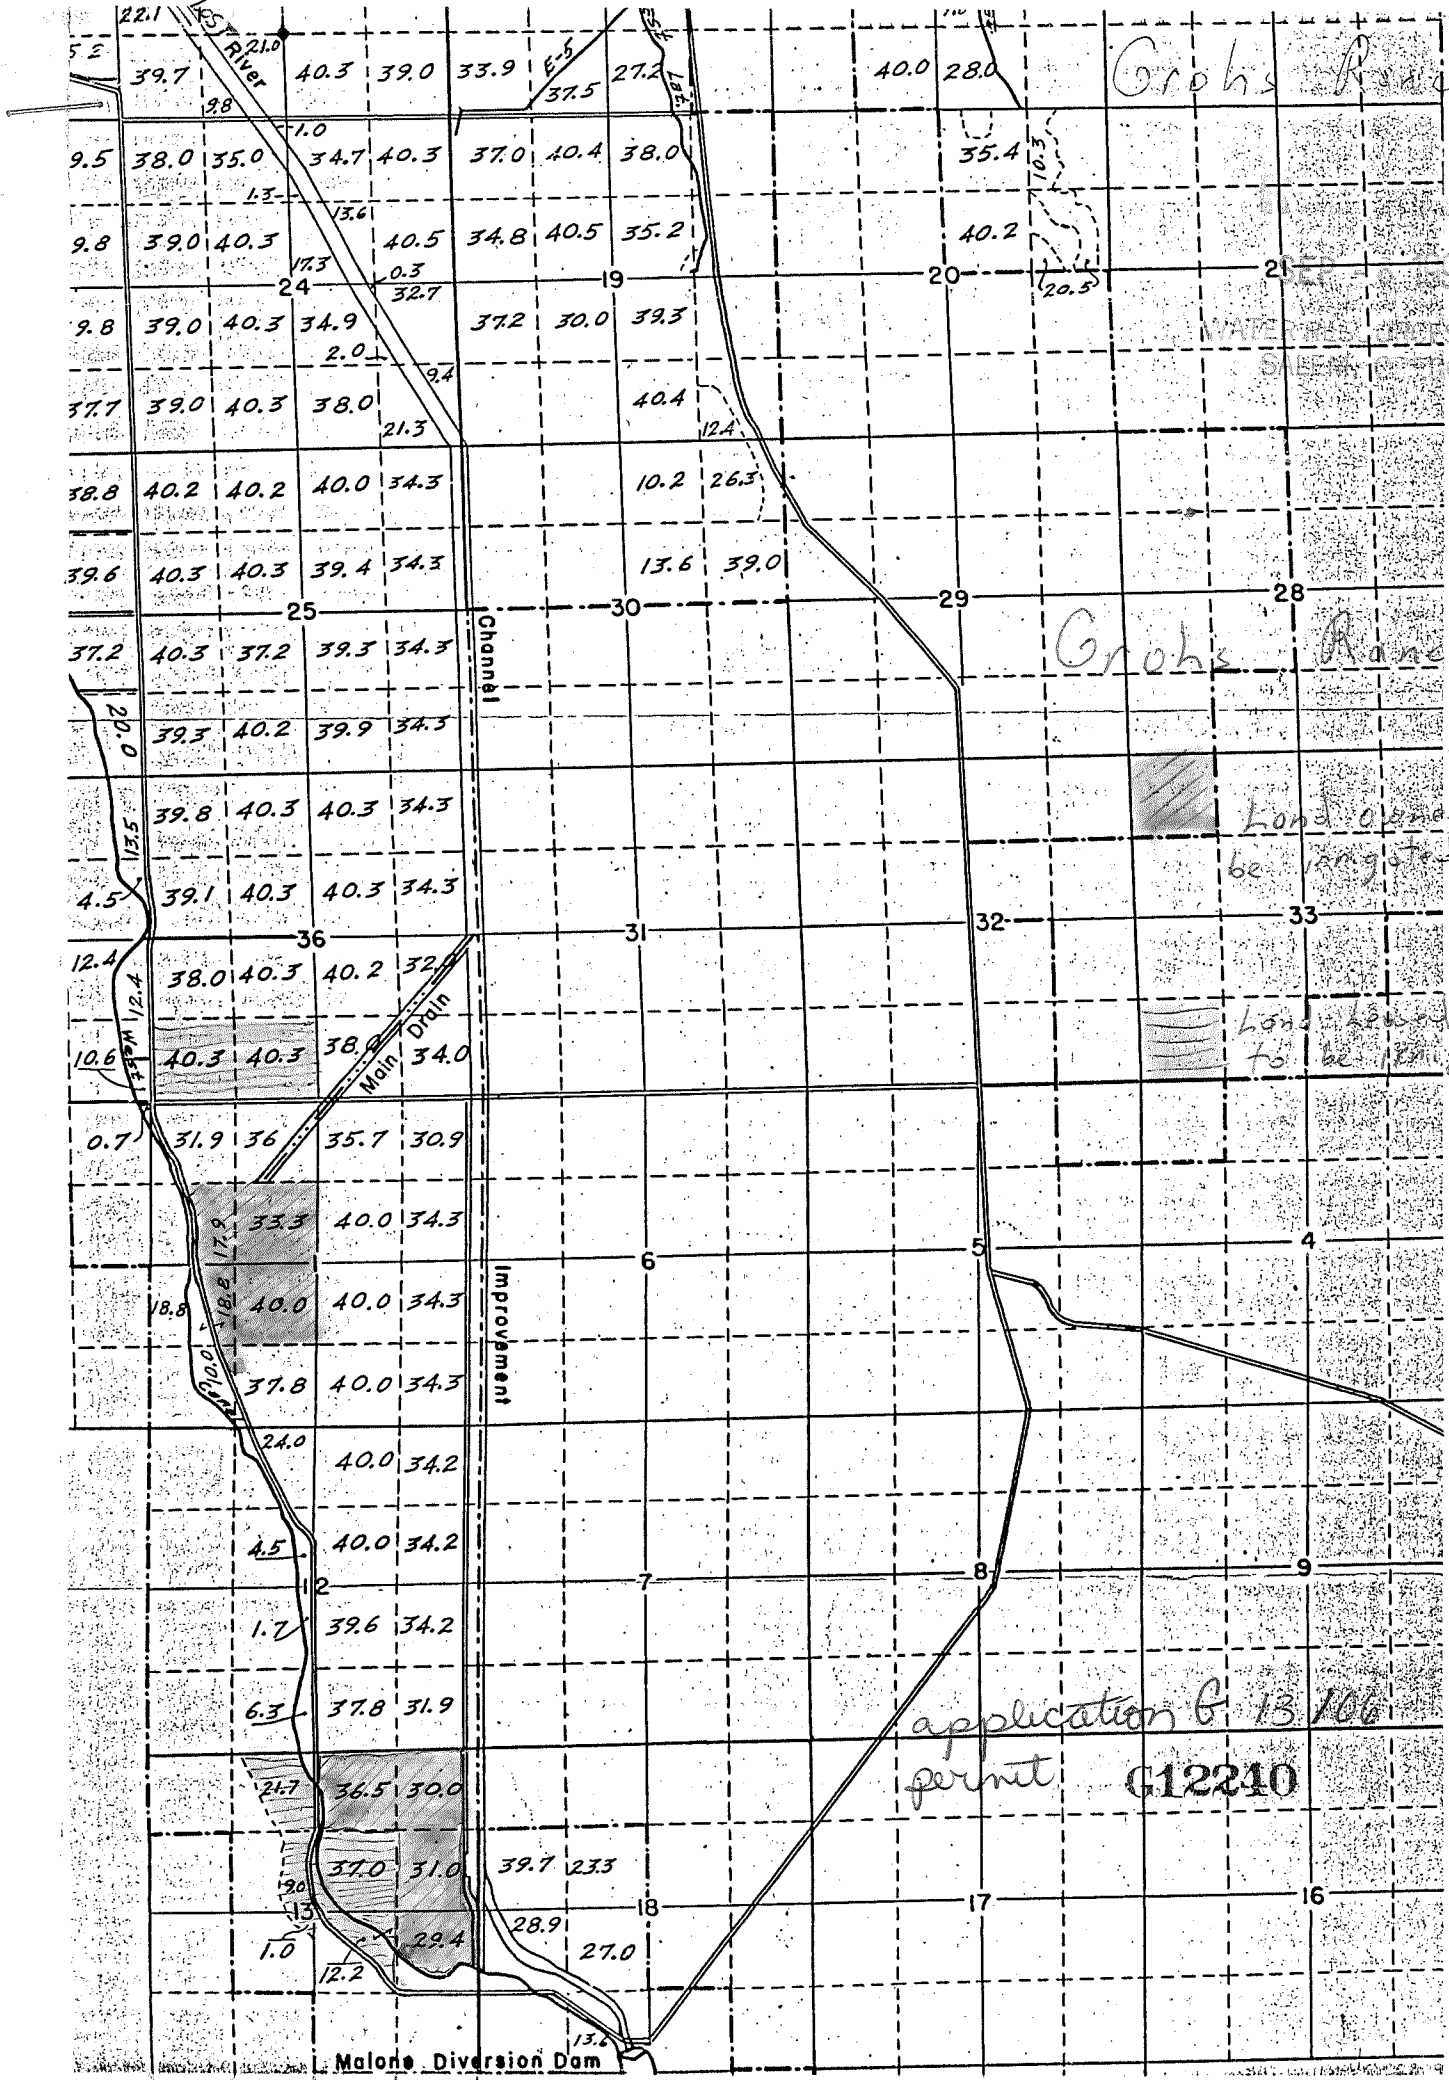 22.1
ST River
21.0
5 2
39.7
40.3 39.0 33.9
E-5
37.5
27.2
Lat.
40.0 28.0
Grohs
9.8
1.0
9.5 38.0 35.0 34.7 40.3 37.0 40.4 38.0
35.4
10.3
1.3
13.6
9.8 39.0 40.3
40.5 34.8 40.5 35.2
40.2
17.3
0.3
24
19
20
21
32.7
20.5
9.8 39.0 40.3 34.9
37.2 30.0 39.3
WATER
SALEM,
2.0
9.4
37.7 39.0 40.3 38.0
40.4
21.3
12.4
38.8 40.2 40.2 40.0 34.3
10.2 26.3
39.6 40.3 40.3 39.4 34.3
13.6 39.0
25
30
29
28
Channel
37.2 40.3 37.2 39.3 34.3
Grohs
20.0
39.3 40.2 39.9 34.3
39.8 40.3 40.3 34.3
13.5
Land
be
4.5 39.1 40.3 40.3 34.3
36
31
32
33
12.4
12.4
38.0 40.3 40.2
Main Drain
West
10.6 40.3 40.3 38.0 34.0
Land
to be
0.7 31.9 36 35.7 30.9
17.9
33.3 40.0 34.3
6
5
4
Improvement
18.8
18.8
40.0 40.0 34.3
10.0
37.8 40.0 34.3
24.0
40.0 34.2
4.5
40.0 34.2
12
7
8
9
1.7 39.6 34.2
6.3 37.8 31.9
application G 13106
permit G12240
21.7 36.5 30.0
37.0 31.0 39.7 23.3
9.0
13
18
17
16
1.0
12.2
29.4
28.9
27.0
13.6
Malone Diversion Dam